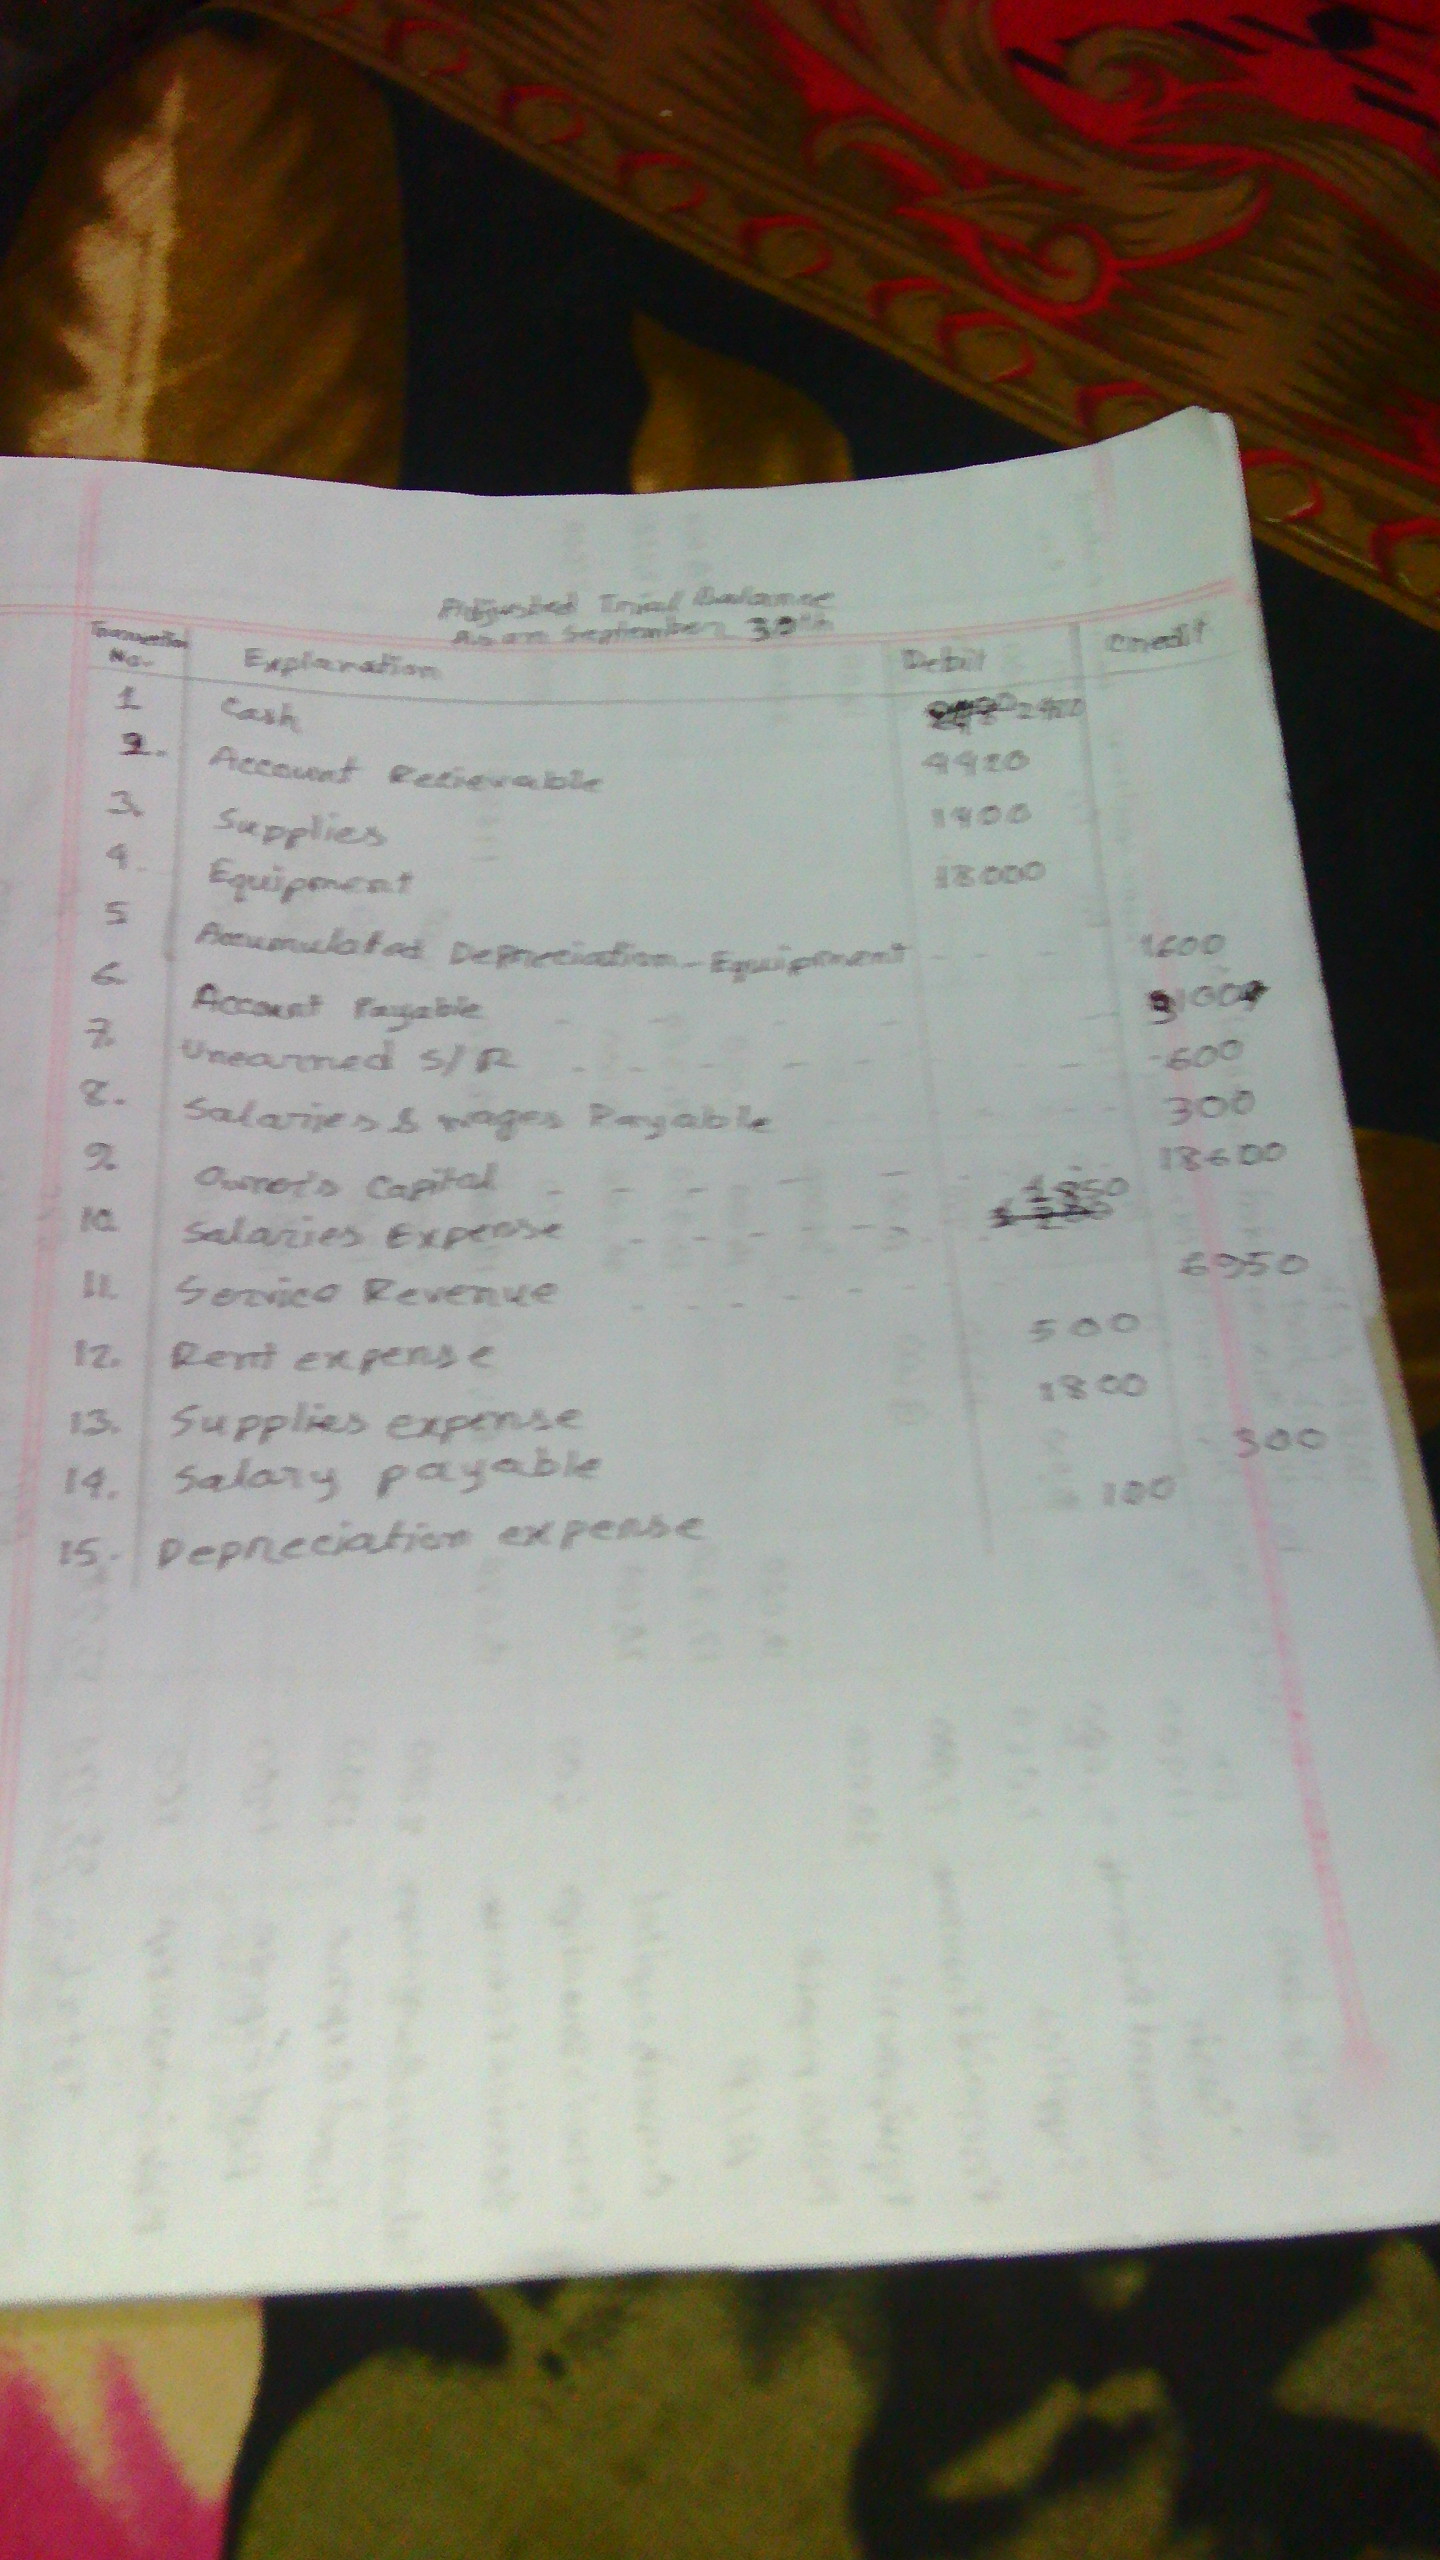 Adjusted Trial Balance
As on September 30th
Transaction No. Explanation Debit Credit
1 Cash
2. Account Recievable 4420
3. Supplies 1400
4. Equipment 18000
5 Accumulated Depreciation - Equipment - - - 1600
6. Account Payable - - - - - 1000
7. Unearned S/R - - - - - - 600
8. Salaries & wages Payable - - - 300
9. Owner's Capital - - - - - 18600
10. Salaries Expense - - - - - - 1850
11. Service Revenue - - - - - - 6950
12. Rent expense 500
13. Supplies expense 1800
14. Salary payable 300
15. Depreciation expense 100